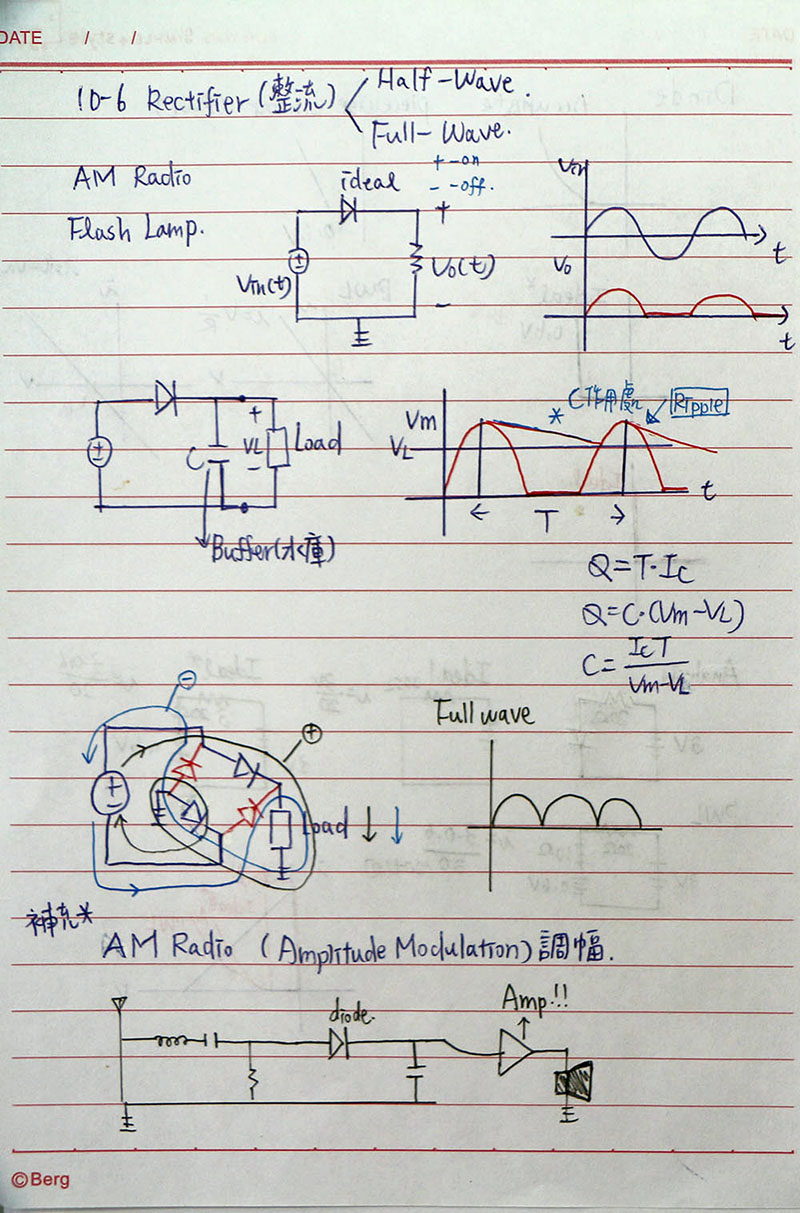 DATE / /
10-6 Rectifier (整流) Half-Wave.
Full-Wave.
AM Radio
Flash Lamp.
ideal
+ -on
- -off.
+
Vin(t)
Vo(t)
-
Vin
t
Vo
t
C
+
VL
-
Load
Buffer(水庫)
Vm
VL
* C作用處
Ripple
t
← T →
Q=T·Ic
Q=C·(Vm-VL)
C=IcT/Vm-VL
⊖
⊕
Load
Full wave
補充*
AM Radio (Amplitude Modulation)調幅.
diode.
Amp!!
©Berg